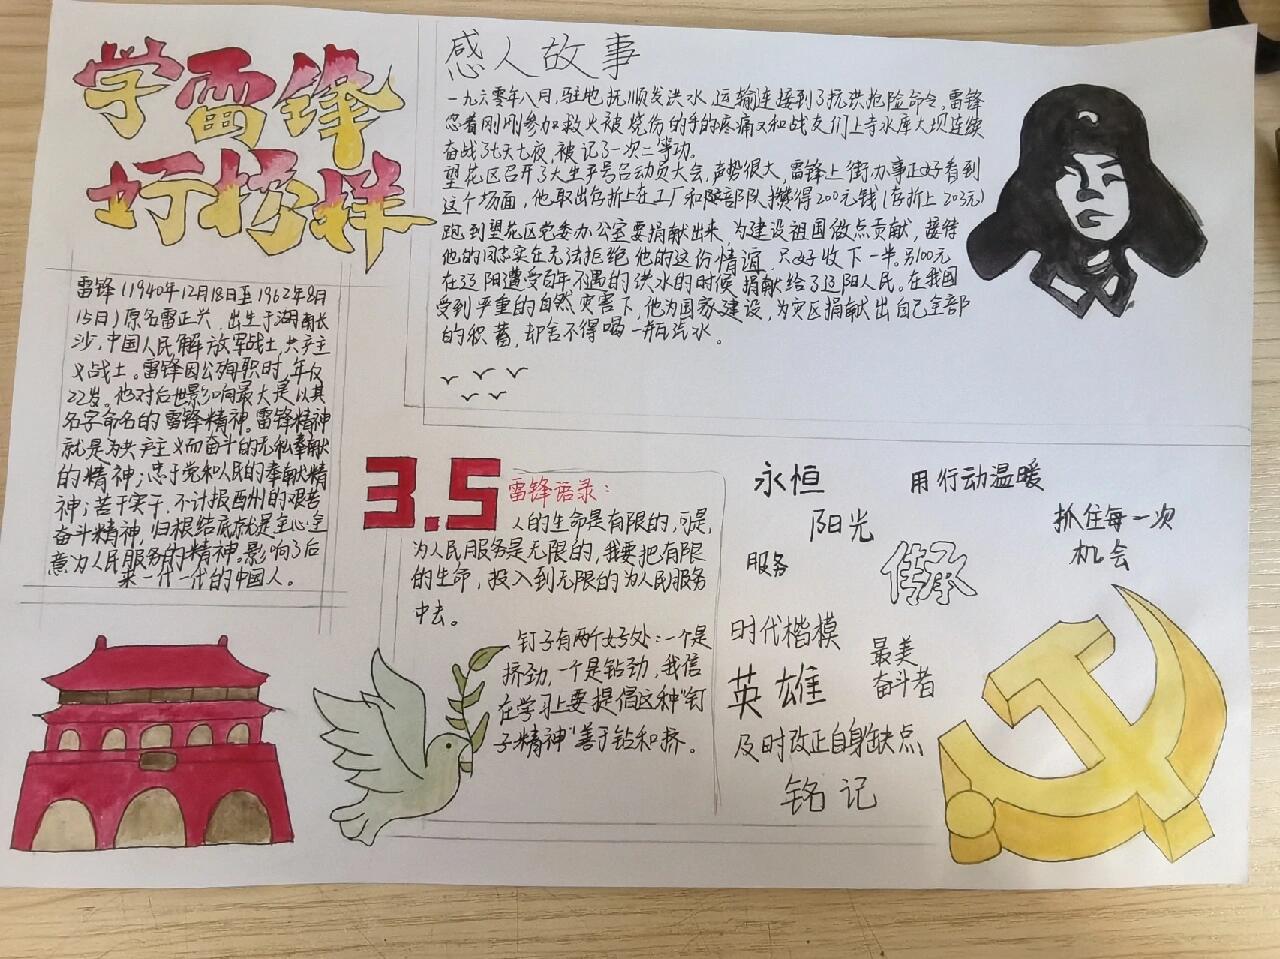 学雷锋
好榜样
雷锋(1940年12月18日至1962年8月
15日)原名雷正兴,出生于湖南长
沙,中国人民解放军战士,共产主
义战士。雷锋因公殉职时,年仅
22岁。他对后世影响最大是以其
名字命名的雷锋精神。雷锋精神
就是为共产主义而奋斗的无私奉献
的精神;忠于党和人民的奉献精
神;苦干实干,不计报酬的艰苦
奋斗精神,归根结底就是全心全
意为人民服务的精神。影响了后
来一代一代的中国人。
感人故事
一九六零年八月,驻地抚顺发洪水,运输连接到了抗洪抢险命令。雷锋
忍着刚刚参加救火被烧伤的手的疼痛又和战友们上寺水库大坝连续
奋战了七天七夜,被记了一次二等功。
望花区召开了大生平号召动员大会,声势很大,雷锋上街办事正好看到
这个场面,他取出存折上在工厂和部队攒得200元钱(存折上203元)
跑到望花区党委办公室要捐献出来,为建设祖国做点贡献,接待
他的同志实在无法拒绝他的这份情谊,只好收下一半。另100元
在辽阳遭受百年不遇的洪水的时候捐献给了辽阳人民。在我国
受到严重的自然灾害下,他为国家建设,为灾区捐献出自己全部
的积蓄,却舍不得喝一瓶汽水。
3.5
雷锋语录:
人的生命是有限的,可是,
为人民服务是无限的,我要把有限
的生命,投入到无限的为人民服务
中去。
钉子有两个好处:一个是
挤劲,一个是钻劲,我信
在学习上要提倡这种"钉
子精神"善于钻和挤。
永恒
用行动温暖
阳光
抓住每一次
机会
服务
传承
时代楷模
最美
奋斗者
英雄
及时改正自身缺点
铭记